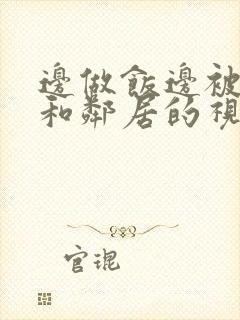 邊做飯邊被
和鄰居的視
官琨